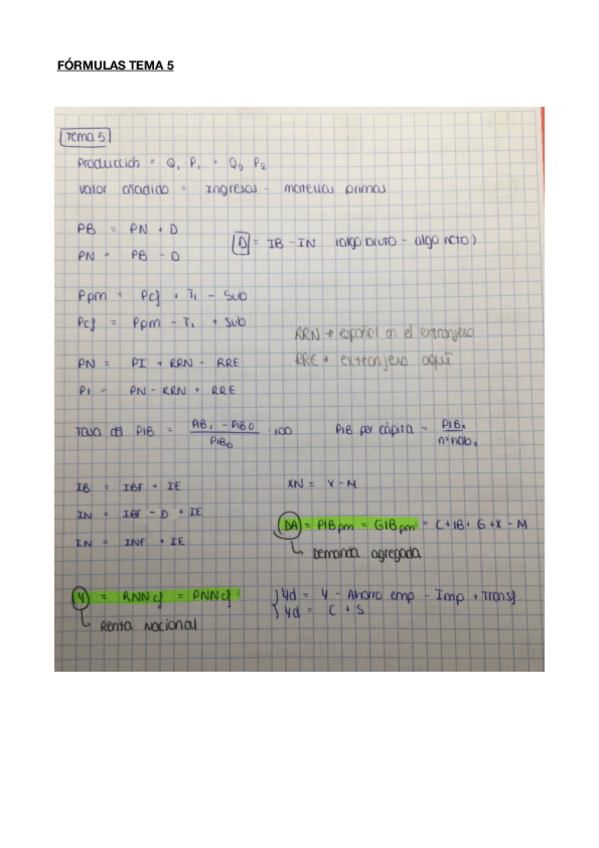 FÓRMULAS TEMA 5
Tema 5
Producción = Q₁ · P₁ + Q₂ · P₂
Valor añadido = Ingresos - materias primas
PB = PN + D
D = IB - IN (algo bruto - algo neto)
PN = PB - D
Ppm = Pcf + Ti - Sub
Pcf = Ppm - Ti + Sub
RRN → español en el extranjero
RRE → extranjero aquí
PN = PI + RRN - RRE
PI = PN - RRN + RRE
Tasa del PIB = PIB₁ - PIB₀ / PIB₀ · 100
PIB per cápita = PIB₁ / nº hab₁
IB = IBF + IE
XN = X - M
IN = IBF - D + IE
DA = PIBpm = GIBpm = C + IB + G + X - M
IN = INF + IE
Demanda agregada
Y = RNNcf = PNNcf
Yd = Y - Ahorro emp - Imp + Transf
Yd = C + S
Renta Nacional